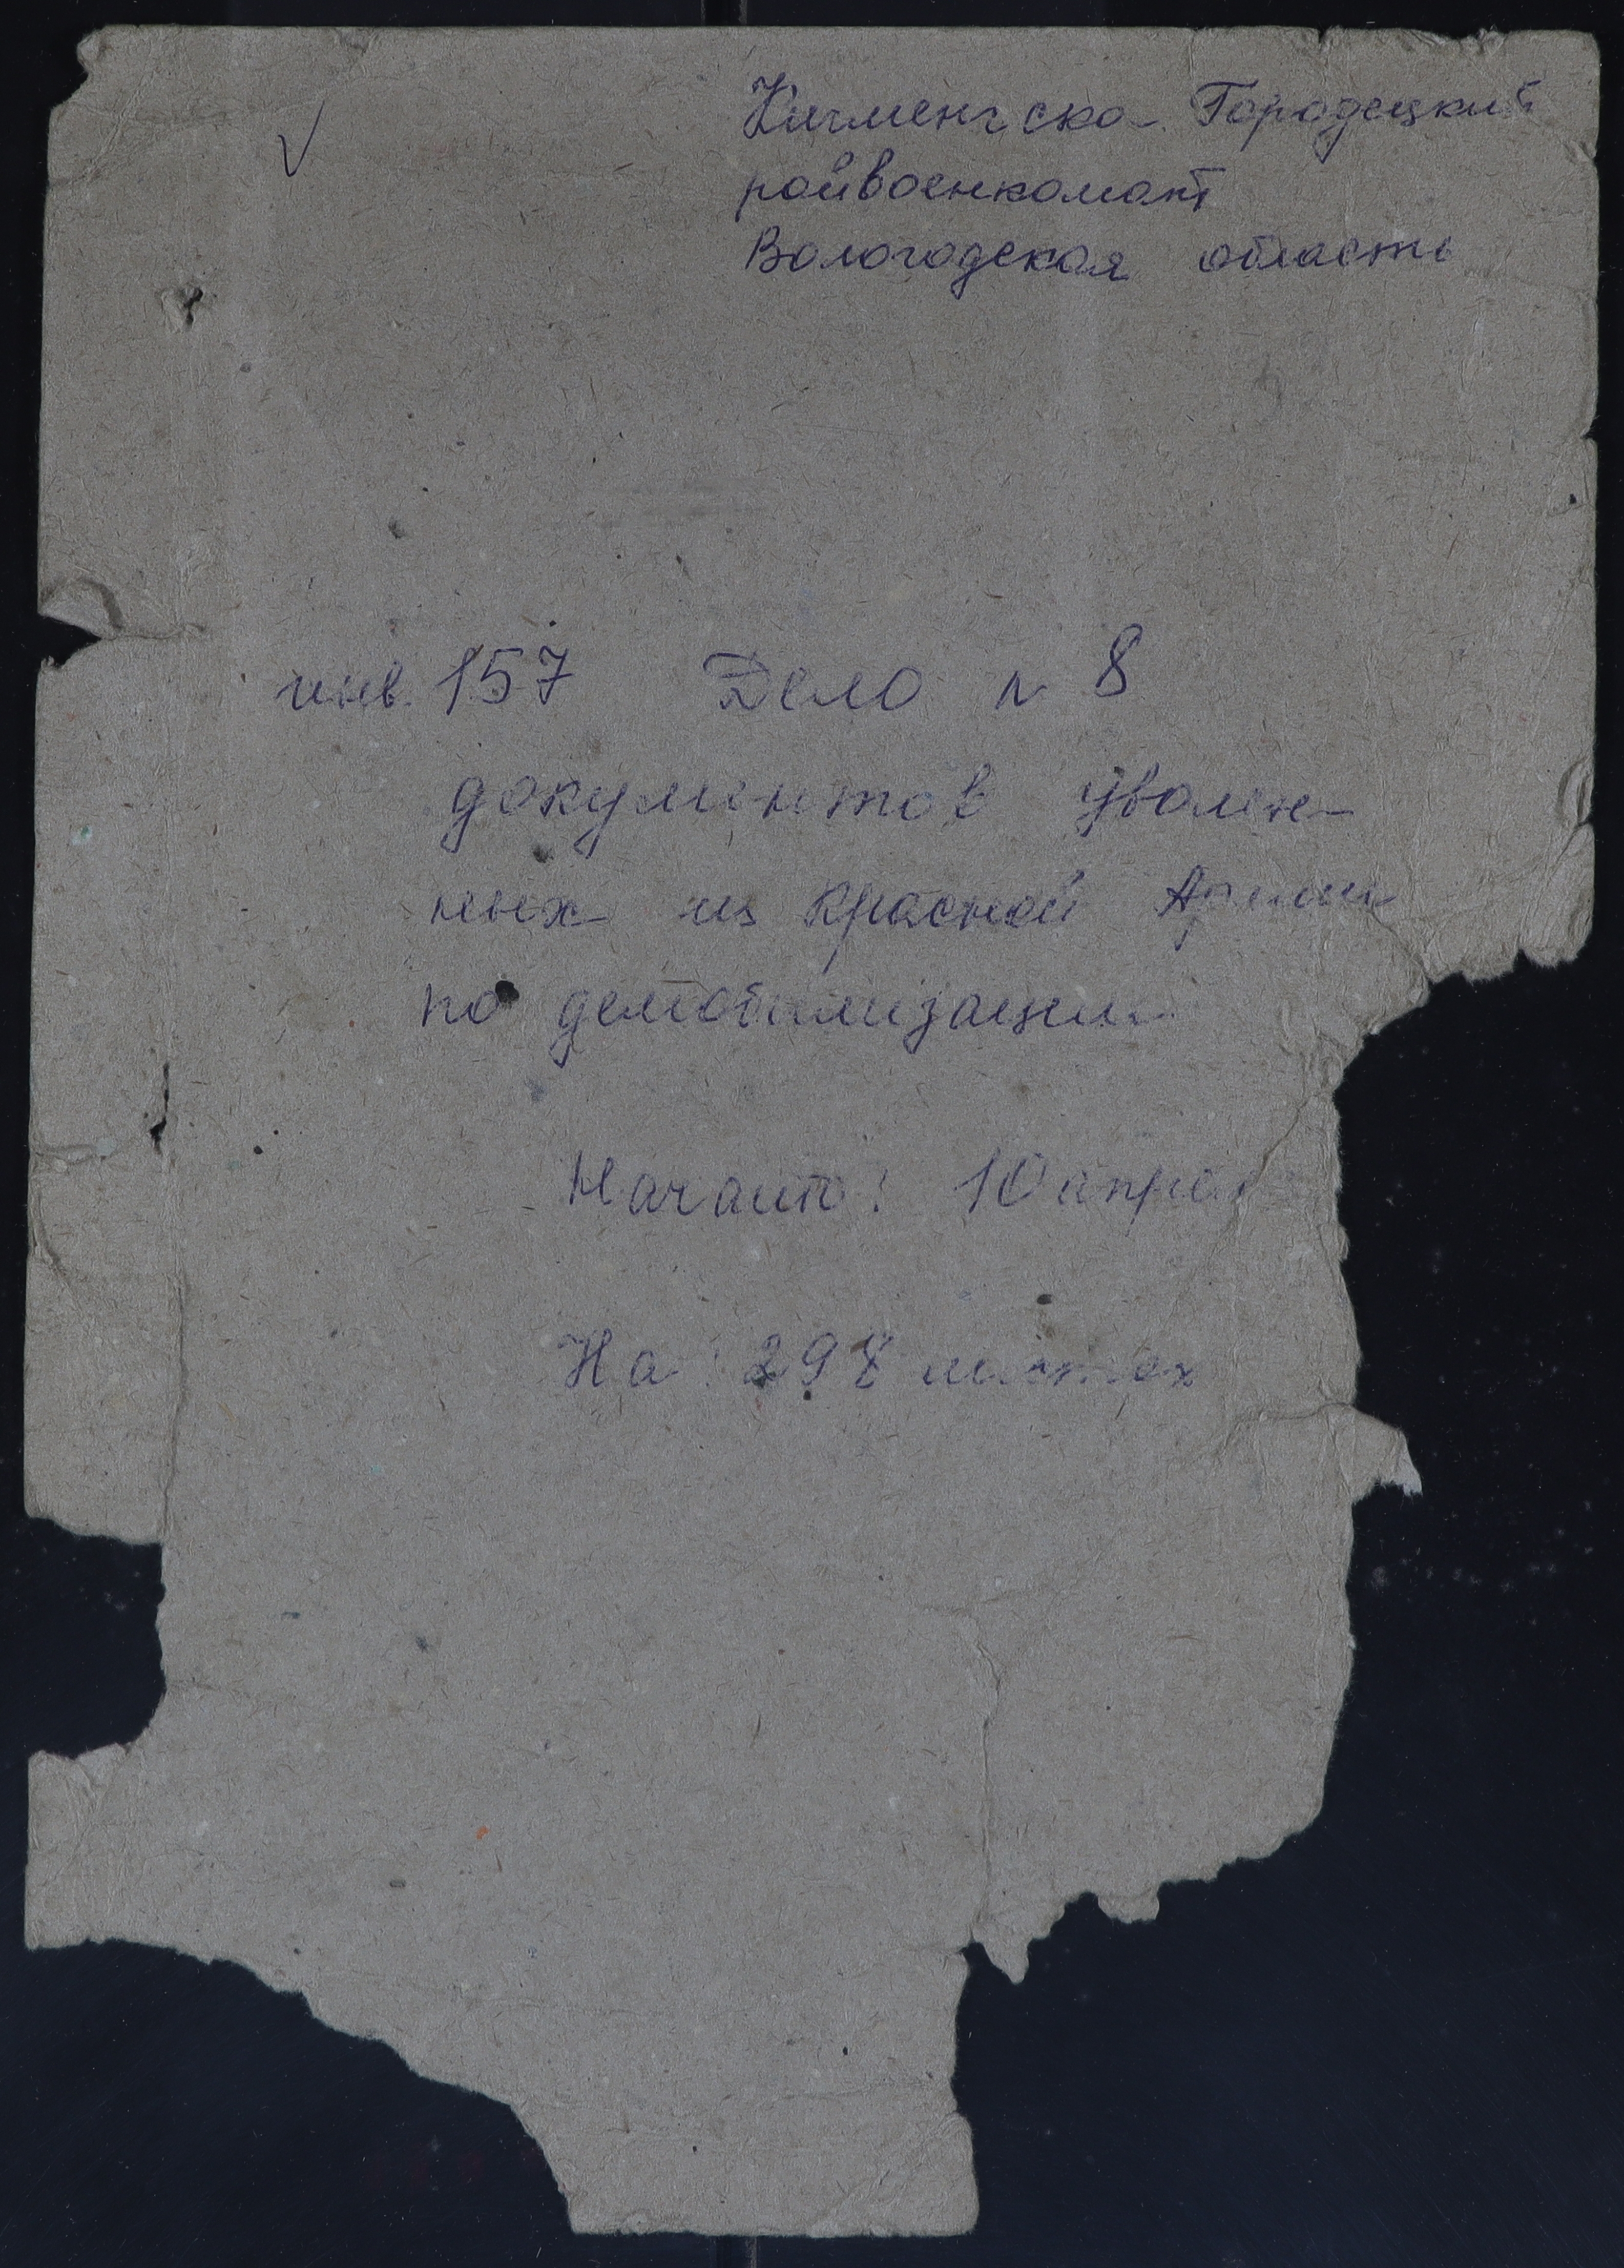 Кичменгско-Городецкий
райвоенкомат
Вологодская область
инв. 157 Дело № 8
документов уволен-
ных из Красной Армии
по демобилизации
Начато: 10 апрел
На: 298 листах